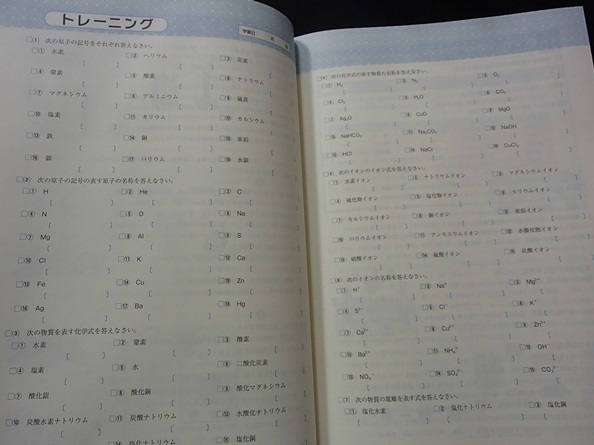 トレーニング
学習日 月 日
□(1) 次の原子の記号をそれぞれ答えなさい。
□① 水素 □② ヘリウム □③ 炭素
□④ 窒素 □⑤ 酸素 □⑥ ナトリウム
□⑦ マグネシウム □⑧ アルミニウム □⑨ 硫黄
□⑩ 塩素 □⑪ カリウム □⑫ カルシウム
□⑬ 鉄 □⑭ 銅 □⑮ 亜鉛
□⑯ 銀 □⑰ バリウム □⑱ 水銀
□(2) 次の原子の記号の表す原子の名称を答えなさい。
□① H □② He □③ C
□④ N □⑤ O □⑥ Na
□⑦ Mg □⑧ Al □⑨ S
□⑩ Cl □⑪ K □⑫ Ca
□⑬ Fe □⑭ Cu □⑮ Zn
□⑯ Ag □⑰ Ba □⑱ Hg
□(3) 次の物質を表す化学式を答えなさい。
□① 水素 □② 窒素 □③ 酸素
□④ 塩素 □⑤ 水 □⑥ 二酸化炭素
□⑦ 酸化銀 □⑧ 酸化銅 □⑨ 酸化マグネシウム
□⑩ 炭酸水素ナトリウム □⑪ 炭酸ナトリウム □⑫ 水酸化ナトリウム
塩化ナトリウム □⑮ 塩化銅
□(4) 次の化学式の表す物質の名称を答えなさい。
□① H₂ □② N₂ □③ O₂
□④ Cl₂ □⑤ H₂O □⑥ CO₂
□⑦ Ag₂O □⑧ CuO □⑨ MgO
□⑩ NaHCO₃ □⑪ Na₂CO₃ □⑫ NaOH
□⑬ HCl □⑭ NaCl □⑮ CuCl₂
□(5) 次のイオンのイオン式を答えなさい。
□① 水素イオン □② ナトリウムイオン □③ マグネシウムイオン
□④ 硫化物イオン □⑤ 塩化物イオン □⑥ カリウムイオン
□⑦ カルシウムイオン □⑧ 銅イオン □⑨ 亜鉛イオン
□⑩ バリウムイオン □⑪ アンモニウムイオン □⑫ 水酸化物イオン
□⑬ 硝酸イオン □⑭ 硫酸イオン □⑮ 炭酸イオン
□(6) 次のイオンの名称を答えなさい。
□① H⁺ □② Na⁺ □③ Mg²⁺
□④ S²⁻ □⑤ Cl⁻ □⑥ K⁺
□⑦ Ca²⁺ □⑧ Cu²⁺ □⑨ Zn²⁺
□⑩ Ba²⁺ □⑪ NH₄⁺ □⑫ OH⁻
□⑬ NO₃⁻ □⑭ SO₄²⁻ □⑮ CO₃²⁻
□(7) 次の物質の電離を表す式を答えなさい。
□① 塩化水素 □② 塩化ナトリウム □③ 塩化銅